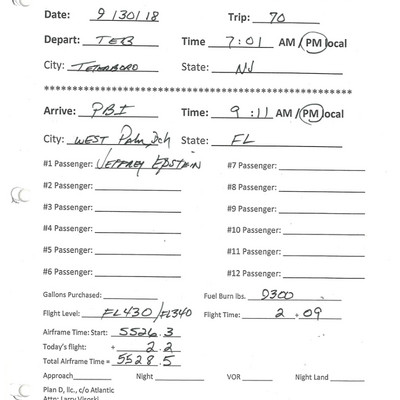 Date: 9/30/18 Trip: 70
Depart: TEB Time 7:01 AM / PM local
City: TETERBORO State: NJ
************************************************
Arrive: PBI Time: 9:11 AM / PM local
City: WEST Palm Bch State: FL
#1 Passenger: JEFFREY EPSTEIN #7 Passenger:
#2 Passenger: #8 Passenger:
#3 Passenger: #9 Passenger:
#4 Passenger: #10 Passenger:
#5 Passenger: #11 Passenger:
#6 Passenger: #12 Passenger:
Gallons Purchased: Fuel Burn lbs. 9300
Flight Level: FL430/FL340 Flight Time: 2 + 09
Airframe Time: Start: 5526.3
Today's flight: + 2.2
Total Airframe Time = 5528.5
Approach Night VOR Night Land
Plan D, llc., c/o Atlantic
Attn: Larry Visoski